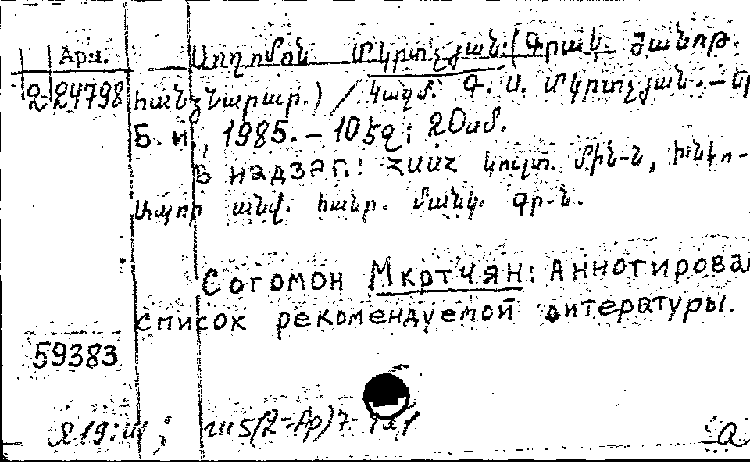 Арм.
2 24798
Սողոմոն Մկրտչյան: (Գրակ. ծանոթ.
հանձնարար.) / Կազմ. Գ. Ս. Մկրտչյան. –
Б. и, 1985. – 10 էջ; 20 սմ.
В надзаг.: ՀՍՍՀ կուլտ. մին-ն, Խնկո-
Ապոր անվ. հանր. մանկ. գր-ն.
Согомон Мкртчян: Аннотирова
список рекомендуемой литературы.
59383